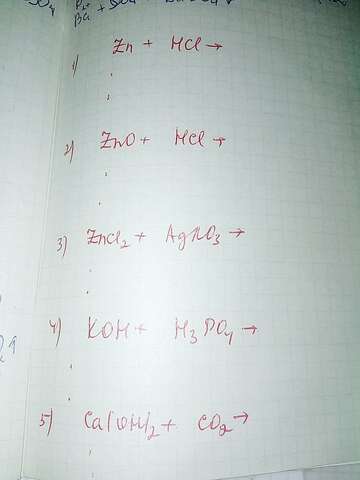 1) Zn + HCl →
2) ZnO + HCl →
3) ZnCl₂ + AgNO₃ →
4) KOH + H₃PO₄ →
5) Ca(OH)₂ + CO₂ →